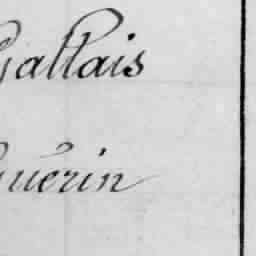 Gallais
Guérin